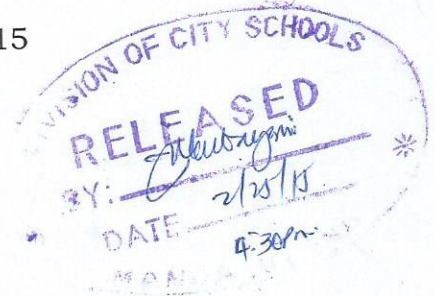 15
DIVISION OF CITY SCHOOLS
RELEASED
BY:
2/25/15
DATE
4:30pm